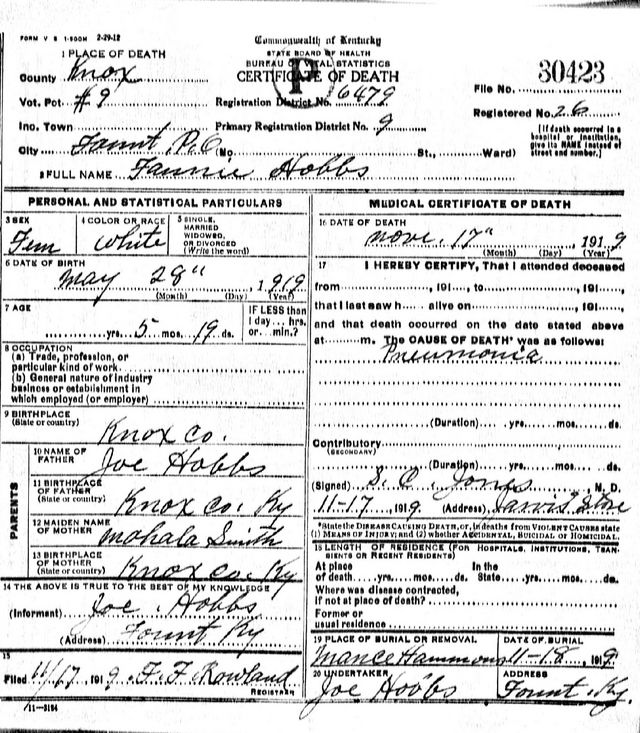 FORM V S 1-500M 2-29-12
Commonwealth of Kentucky
STATE BOARD OF HEALTH
BUREAU OF VITAL STATISTICS
CERTIFICATE OF DEATH
P
1 PLACE OF DEATH
County Knox
Vot. Pct #9
Registration District No. 6479
File No. 30423
Registered No. 26
Inc. Town
Primary Registration District No. 9
City Fount, P.O. (No. St., Ward)
[If death occurred in a hospital or institution, give its NAME instead of street and number.]
2 FULL NAME Fannie Hobbs
PERSONAL AND STATISTICAL PARTICULARS
3 SEX
Fem
4 COLOR OR RACE
White
5 SINGLE, MARRIED WIDOWED, OR DIVORCED (Write the word)
6 DATE OF BIRTH
May 28" , 1919
(Month) (Day) (Year)
7 AGE
yrs. 5 mos. 19 ds.
IF LESS than 1 day... hrs. or... min.?
8 OCCUPATION
(a) Trade, profession, or particular kind of work
(b) General nature of industry business or establishment in which employed (or employer)
9 BIRTHPLACE
(State or country)
Knox Co.
PARENTS
10 NAME OF FATHER
Joe Hobbs
11 BIRTHPLACE OF FATHER
(State or country)
Knox Co. Ky
12 MAIDEN NAME OF MOTHER
Mohala Smith
13 BIRTHPLACE OF MOTHER
(State or country)
Knox Co. Ky
14 THE ABOVE IS TRUE TO THE BEST OF MY KNOWLEDGE
(Informant) Joe Hobbs
(Address) Fount Ky
15
Filed 11/17, 1919. F. F. Rowland
REGISTRAR
11-3184
MEDICAL CERTIFICATE OF DEATH
16 DATE OF DEATH
Nov. 17" , 1919
(Month) (Day) (Year)
17 I HEREBY CERTIFY, That I attended deceased
from , 191 , to , 191 ,
that I last saw h alive on , 191 ,
and that death occurred on the date stated above
at m. The CAUSE OF DEATH* was as follows:
Pneumonia
(Duration) yrs. mos. ds.
Contributory
(SECONDARY)
(Duration) yrs. mos. ds.
(Signed) S. C. Jones, M. D.
11-17, 1919 (Address) Jarvis Store
*State the DISEASE CAUSING DEATH, or, in deaths from VIOLENT CAUSES state
(1) MEANS OF INJURY; and (2) whether ACCIDENTAL, SUICIDAL or HOMICIDAL.
18 LENGTH OF RESIDENCE (FOR HOSPITALS, INSTITUTIONS, TRANSIENTS OR RECENT RESIDENTS)
At place of death yrs. mos. ds.
In the State yrs. mos. ds.
Where was disease contracted, if not at place of death?
Former or usual residence
19 PLACE OF BURIAL OR REMOVAL
Mance Hammons
DATE OF BURIAL
11-18, 1919
20 UNDERTAKER
Joe Hobbs
ADDRESS
Fount, Ky.